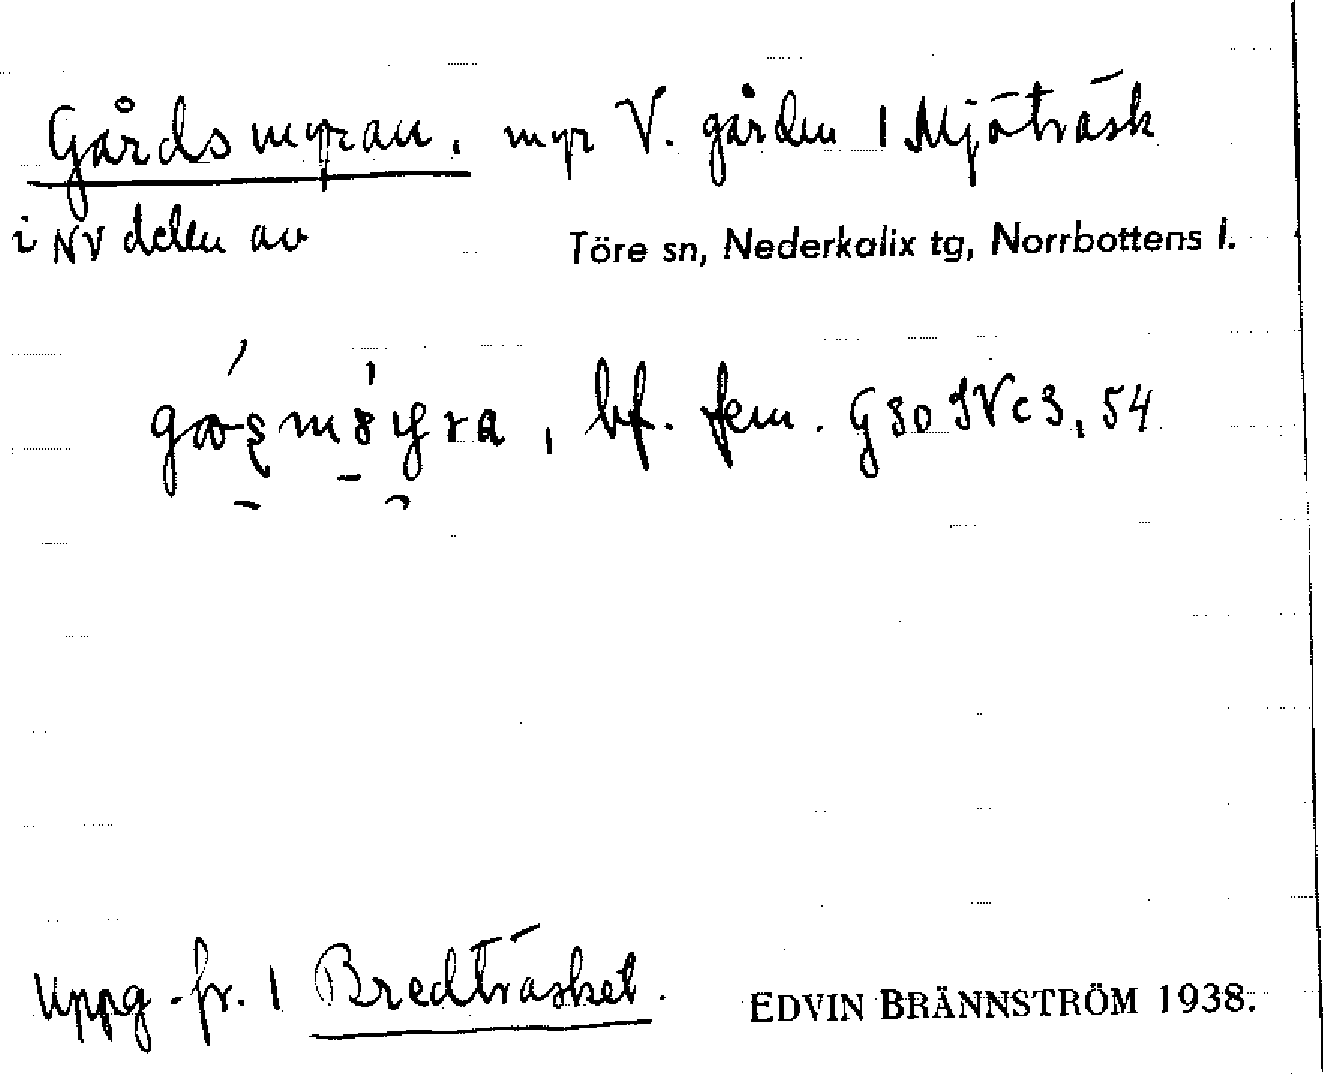 Gårdsmyran, myr V. gården 1 Mjöträsk
i NV delen av Töre sn, Nederkalix tg, Norrbottens l.
bf. fem. G80 IV c 3, 54
Uppg. fr. 1 Bredträsket. EDVIN BRÄNNSTRÖM 1938.